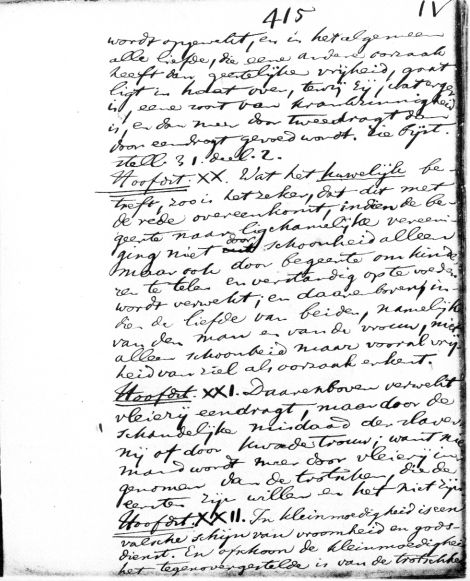 415
IV
wordt opgewekt, en in het algemeen
alle liefde, die eene andere oorzaak
heeft dan geestelijke vrijheid, gaat
ligt in haat over, tenzij zij, wat erger
is, eene soort van krankzinnigheid
is, en dan meer door tweedragt dan
door eendragt gevoed wordt. Zie bijst.
stell. 31. deel. 2.
Hoofdst. XX. Wat het huwelijk be-
treft, zoo is het zeker, dat dit met
de rede overeenkomt, indien de be-
geerte naar ligchamelijke vereeni-
ging niet door schoonheid alleen
maar ook door begeerte om kinde
ren te telen en verstandig op te voeden
wordt verwekt; en daarenboven, in-
dien de liefde van beiden, namelijk
van den man en van de vrouw, niet
alleen schoonheid maar vooral vrij
heid van ziel als oorzaak erkent.
Hoofdst. XXI. Daarenboven verwekt
vleierij eendragt, maar door de
schandelijke misdaad der slaver
nij of door kwade trouw; want nie
mand wordt meer door vleierij in
genomen dan de trotschen, die de
eersten zijn willen en het niet zijn
Hoofdst. XXII. In kleinmoedigheid is een
valsche schijn van vroomheid en gods-
dienst. En ofschoon de kleinmoedigheid
het tegenovergestelde is van de trotschheid